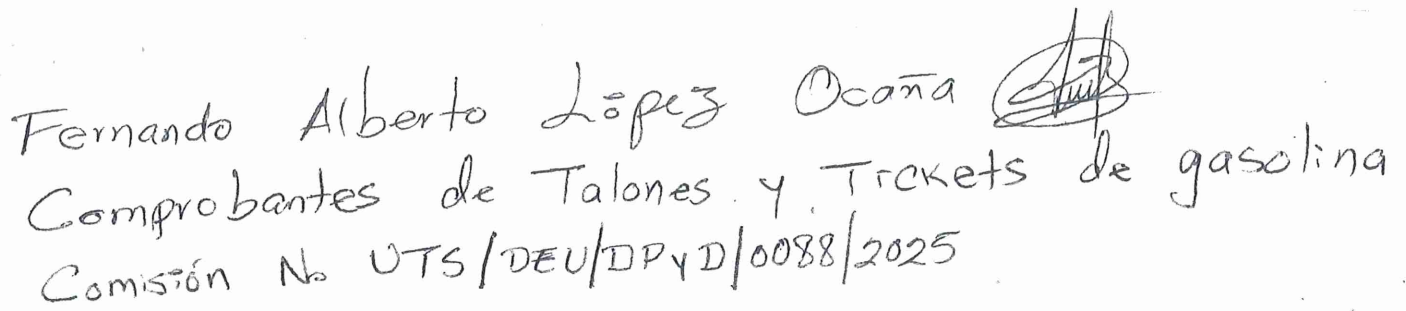 Fernando Alberto López Ocaña
Comprobantes de Talones y Tickets de gasolina
Comisión No UTS/DEU/DPyD/0088/2025